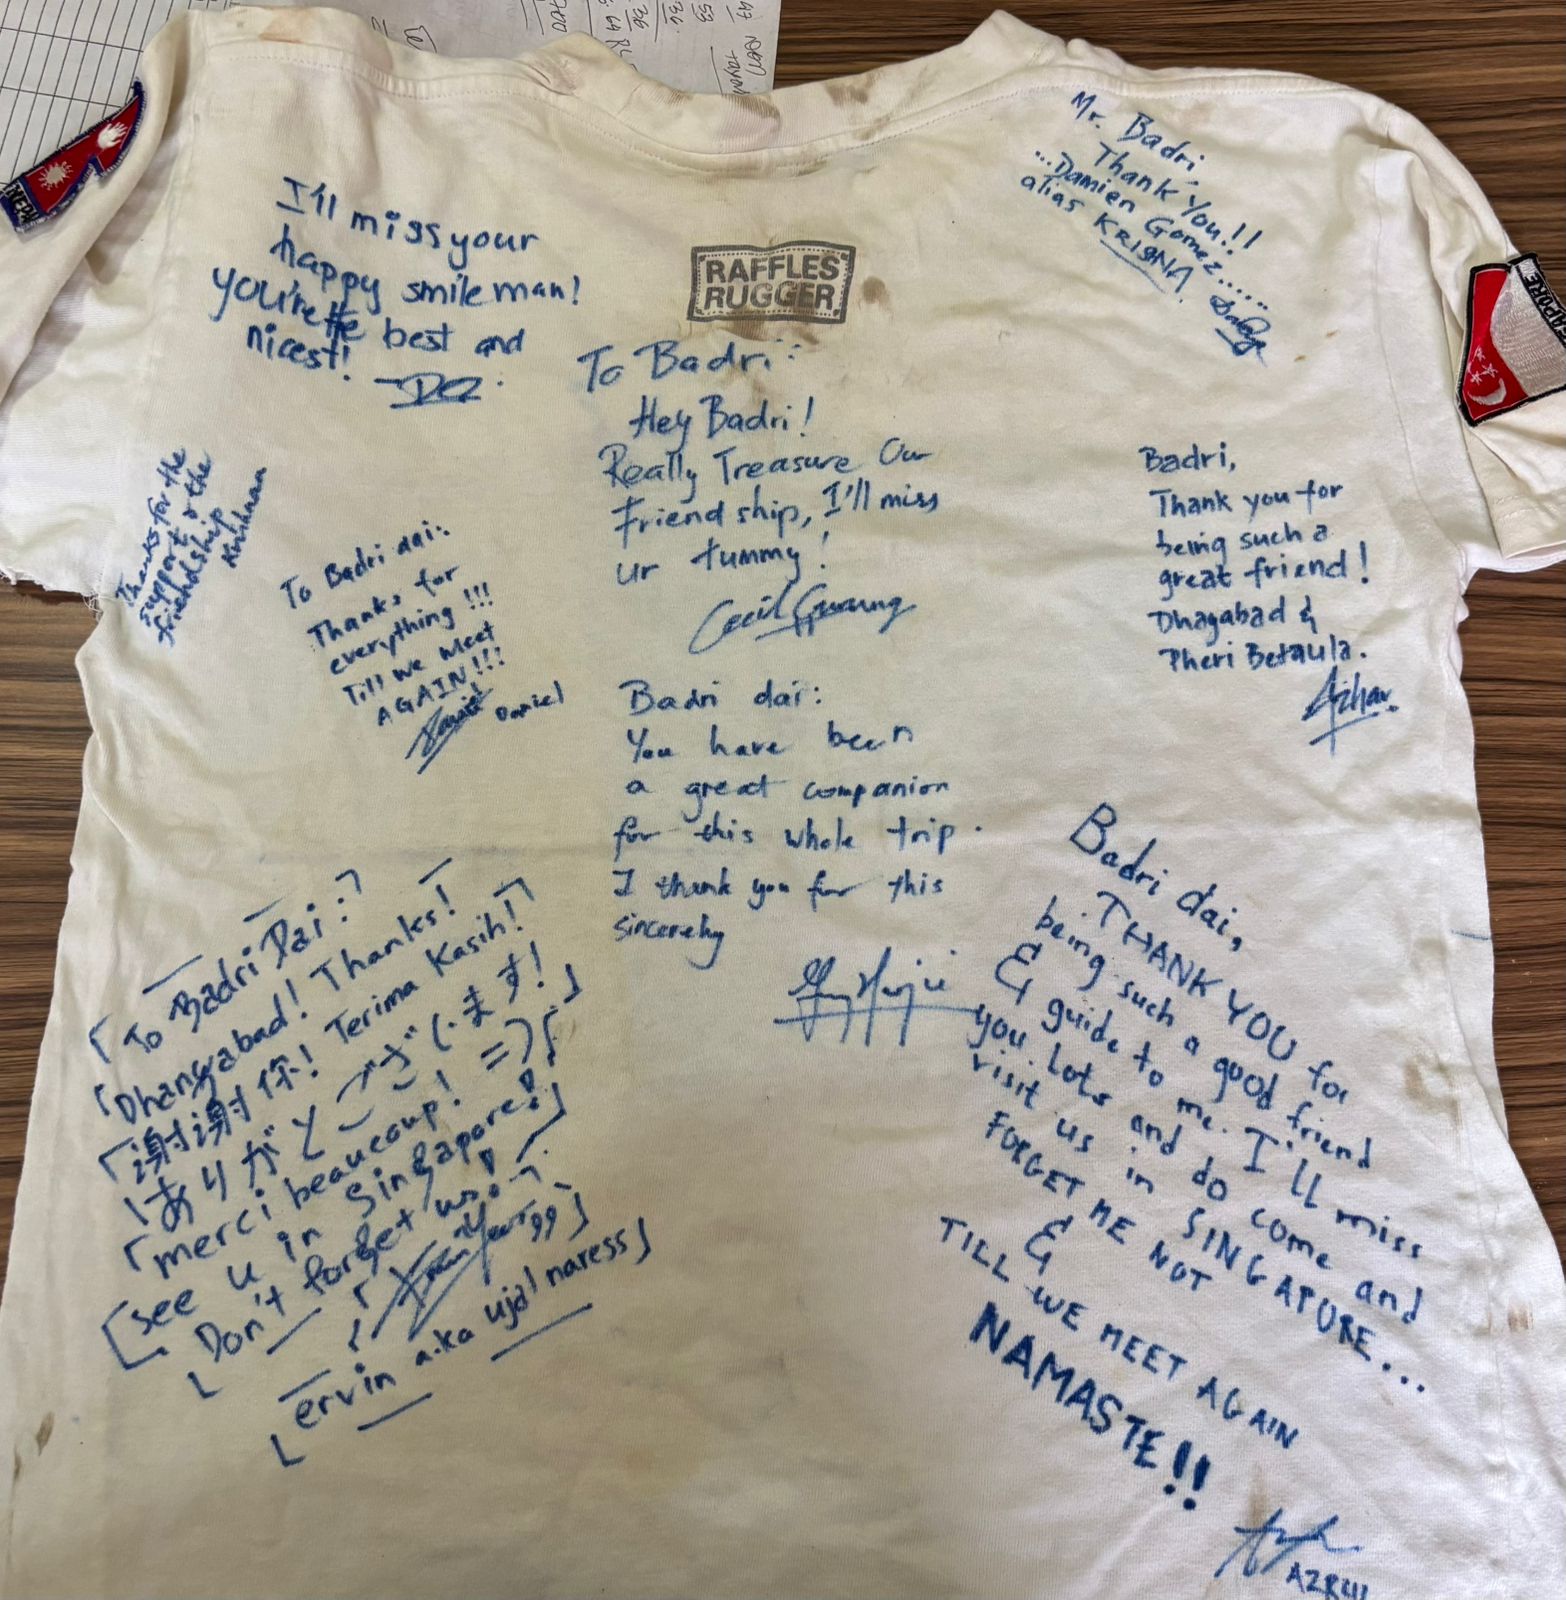 I'll miss your
happy smile man!
You're the best and
nicest!
RAFFLES
RUGGER
Mr. Badri,
Thank You!!
...Damien Gomez......
alias KRISNA.
To Badri:
Hey Badri!
Really Treasure Our
Friendship, I'll miss
ur tummy!
Thanks for the
support & the
friendship
To Badri dai:
Thanks for
everything!!!
Till we meet
AGAIN!!!
Daniel
Badri,
Thank you for
being such a
great friend!
Dhayabad &
Pheri Betaula.
Azhar.
Badri dai:
You have been
a great companion
for this whole trip.
I thank you for this
sincerely
「To Badri Dai:」
「Dhanyabad! Thanks!
「谢谢你! Terima Kasih!」
ありがとーございます!」
「merci beaucoup! =)
[see u in Singapore!]
Don't forget us!
[ervin a.k.a ujal naress]
Badri dai,
THANK YOU for
being such a good friend
& guide to me. I'll miss
you lots and do come and
visit us in SINGAPORE...
FORGET ME NOT
&
TILL WE MEET AGAIN
NAMASTE!!